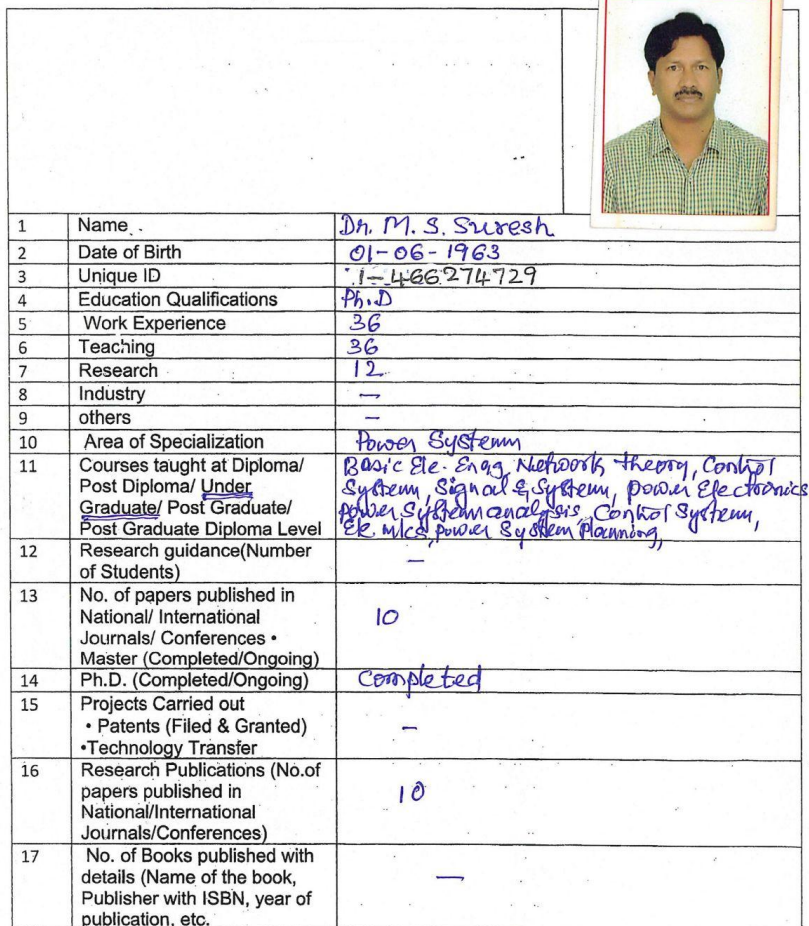 1 Name Dr. M. S. Suresh
2 Date of Birth 01-06-1963
3 Unique ID 1-466274729
4 Education Qualifications Ph.D
5 Work Experience 36
6 Teaching 36
7 Research 12
8 Industry —
9 others —
10 Area of Specialization Power Systemm
11 Courses taught at Diploma/ Basic Ele. Engg, Network theory, Control
Post Diploma/ Under System, Signal & System, power Electronics
Graduate/ Post Graduate/ power System analysis, Control System,
Post Graduate Diploma Level Ele. m/cs, power System Planning,
12 Research guidance(Number –
of Students)
13 No. of papers published in
National/ International 10
Journals/ Conferences •
Master (Completed/Ongoing)
14 Ph.D. (Completed/Ongoing) Completed
15 Projects Carried out
• Patents (Filed & Granted) –
•Technology Transfer
16 Research Publications (No.of
papers published in 10
National/International
Journals/Conferences)
17 No. of Books published with
details (Name of the book, —
Publisher with ISBN, year of
publication, etc.